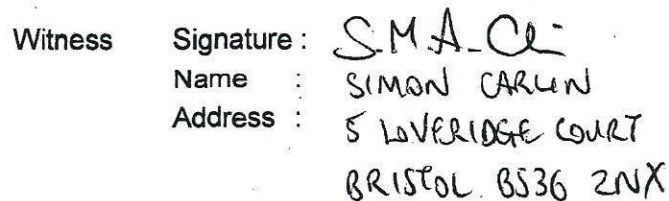 Witness Signature : S.M.A. Cl
Name : SIMON CARLIN
Address : 5 LOVERIDGE COURT
BRISTOL. BS36 2NX